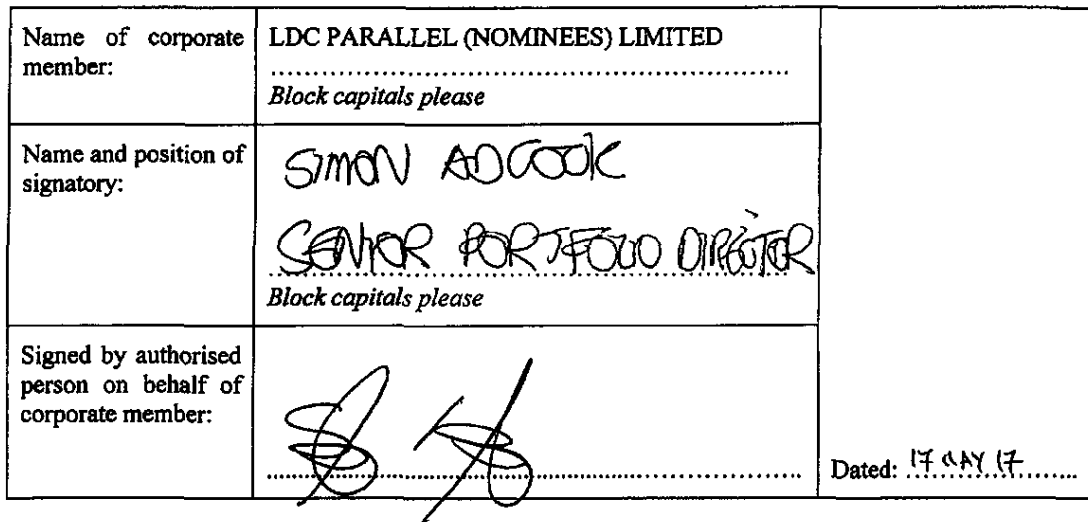 Name of corporate member:
LDC PARALLEL (NOMINEES) LIMITED
Block capitals please
Name and position of signatory:
SIMON ADCOOK
SENIOR PORTFOLIO DIRECTOR
Block capitals please
Signed by authorised person on behalf of corporate member:
Dated: 17 MAY 17